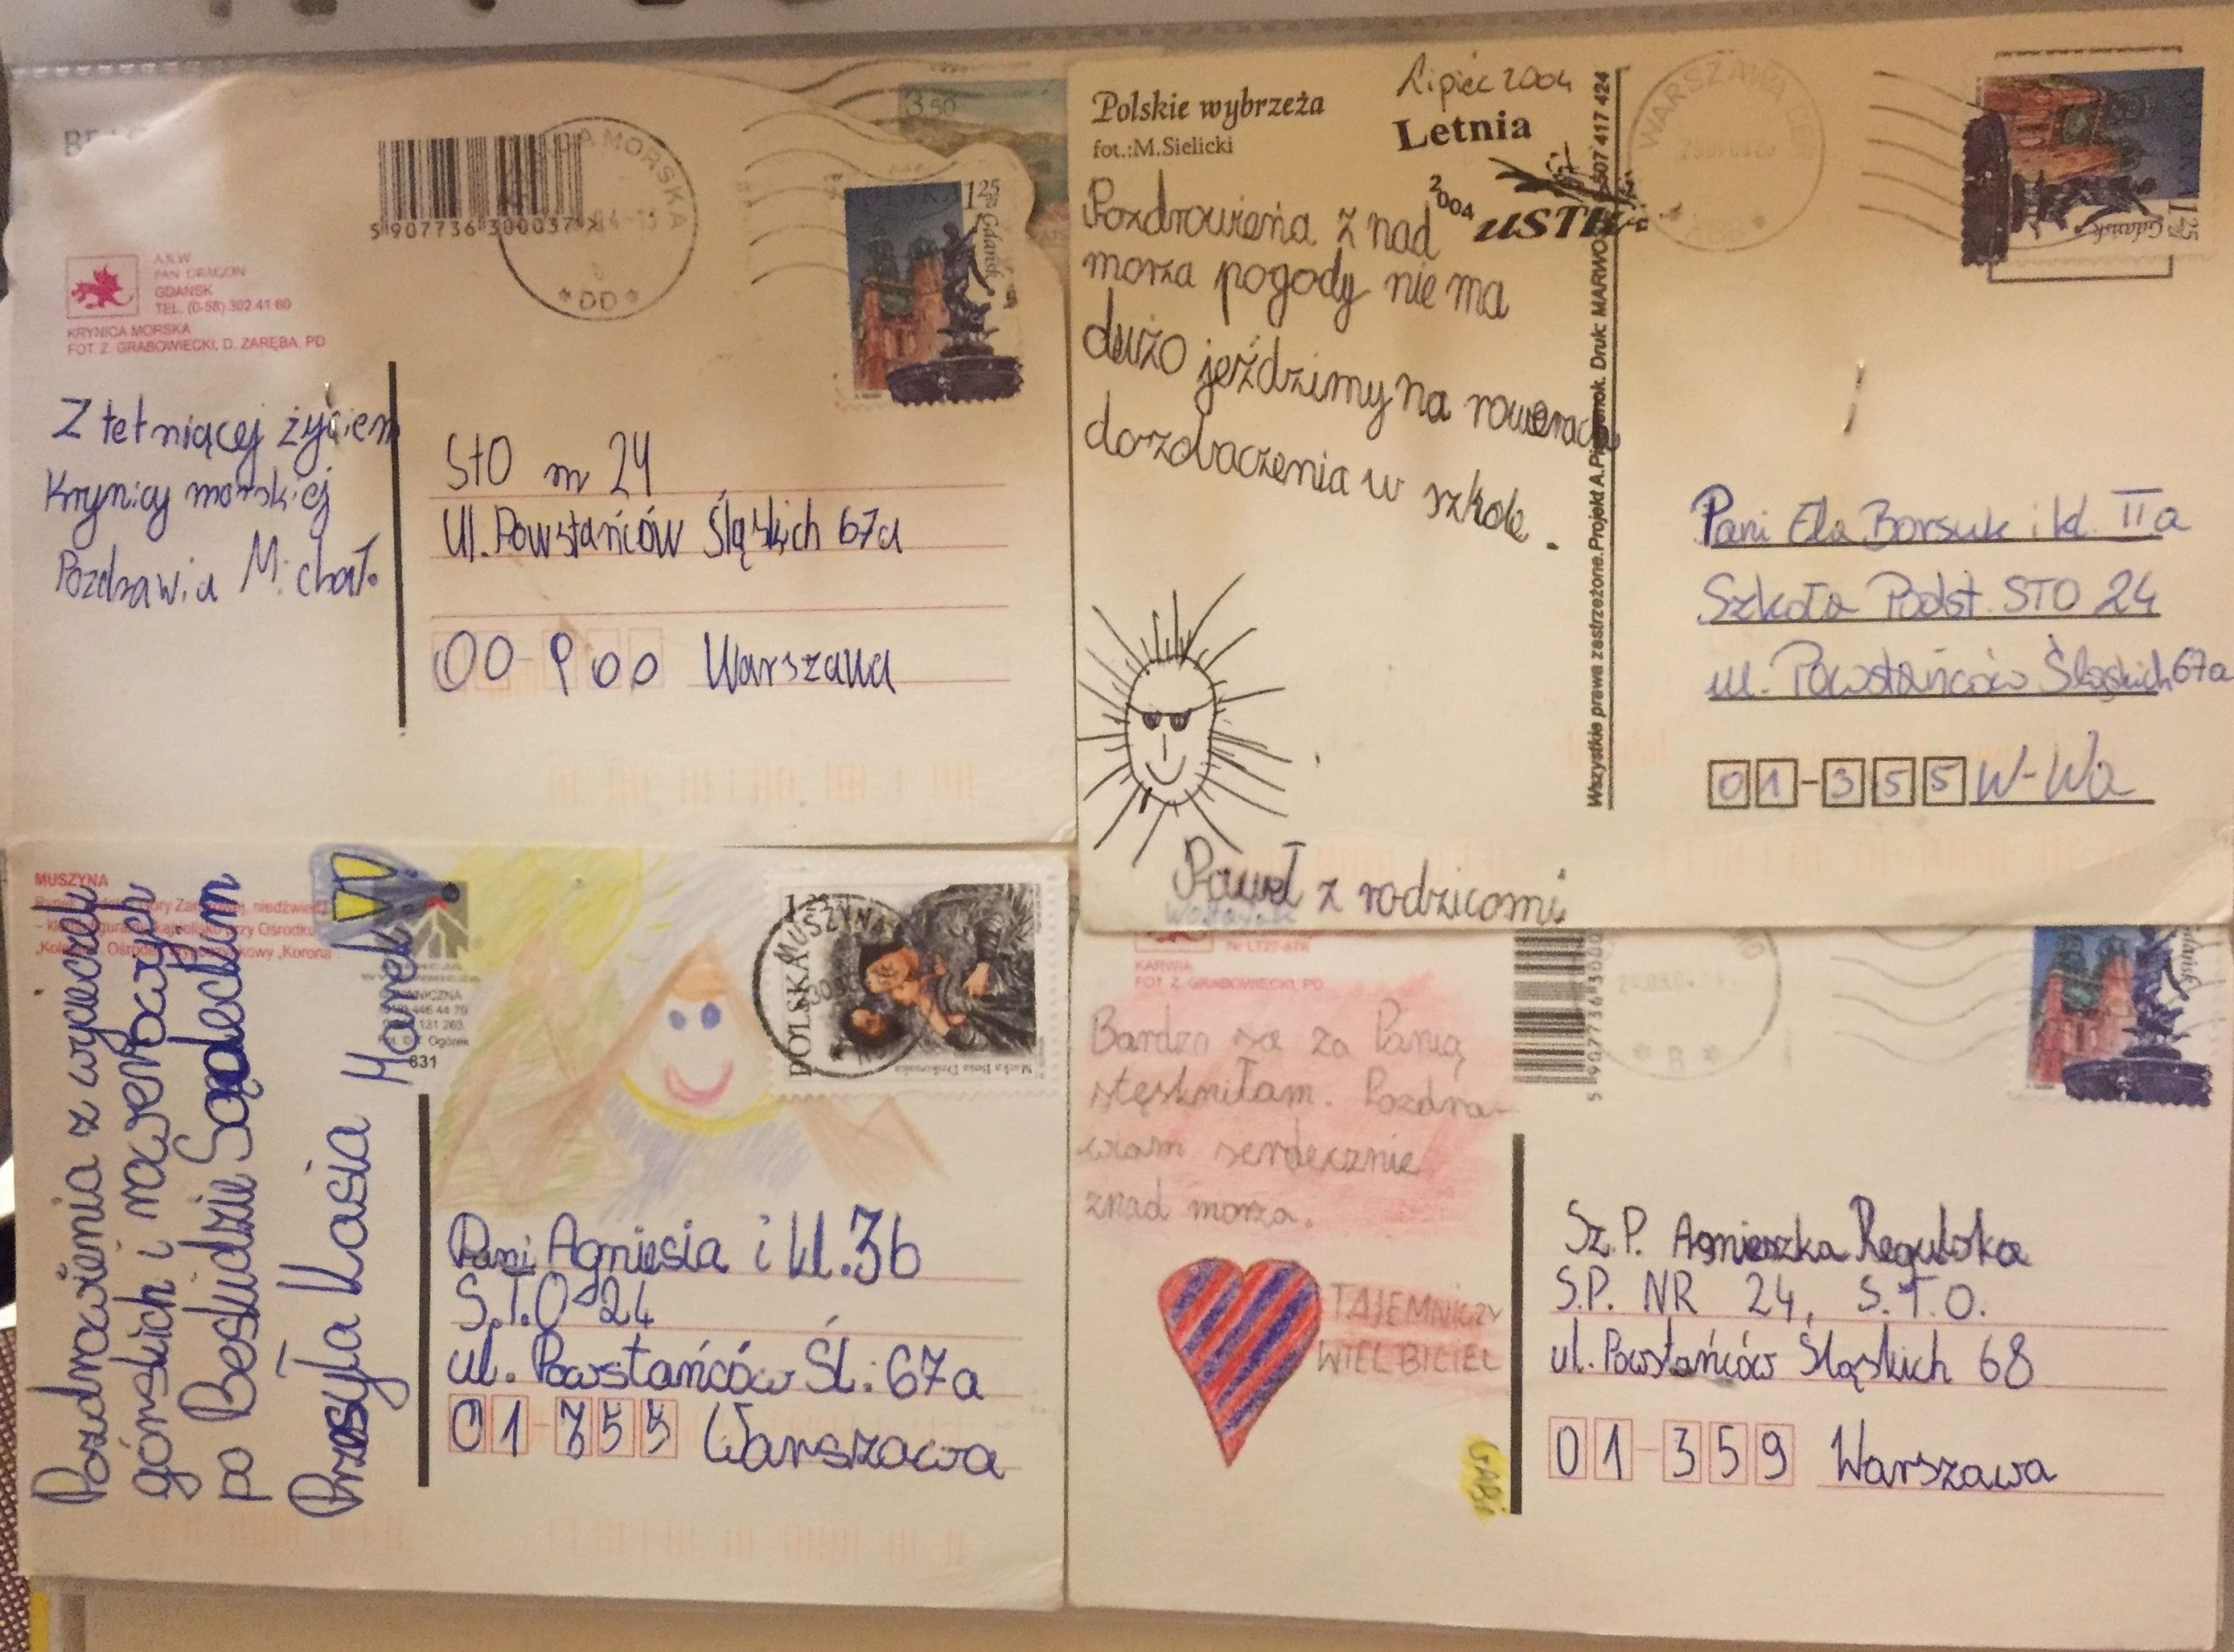 3,50
5 907736 300037 >
A MORSKA
*DD*
POLSKA 1 25
ZŁ
Gdańsk
A.K.W
PAN DRAGON
GDAŃSK
TEL. (0-58) 302 41 60
KRYNICA MORSKA
FOT. Z. GRABOWIECKI, D. ZARĘBA, PD
Z tetniącej życiem
Krynicy morskiej
Pozdrawia Michał.
StO m 24
Ul. Powstańców Śląskich 67a
00-900 Warszawa
Polskie wybrzeża
fot.:M.Sielicki
Lipiec 2004
Letnia
2004 USTK
WARSZAWA
Pozdrowienia z nad
morza pogody nie ma
dużo jeździmy na rowerach
dozobaczenia w szkole.
Paweł z rodzicami
Wszystkie prawa zastrzeżone. Projekt A. Druk: MARWO 507 417 424
1 25
Gdańsk
Pani Ela Borsuk i kl. IIa
Szkoła Podst. STO 24
ul. Powstańców Śląskich 67a
01-355 W-Wa
MUSZYNA
Pozdrowienia z wycieczek
górskich i rowerowych
po Beskidzie Sądeckim
Przesyła Kasia Marek
831
POLSKA
MUSZYNA
Pani Agniesia i kl. 3b
S.T.O 24
ul. Powstańców Śl. 67a
01-355 Warszawa
KARWIA
FOT. Z. GRABOWIECKI, PD
* R *
Gdańsk
Bardzo się za Panią
stęskniłam. Pozdra-
wiam serdecznie
znad morza.
TAJEMNICZY
WIELBICIEL
GABI
Sz.P. Agnieszka Regulska
S.P. NR 24, S.T.O.
ul. Powstańców Śląskich 68
01-359 Warszawa